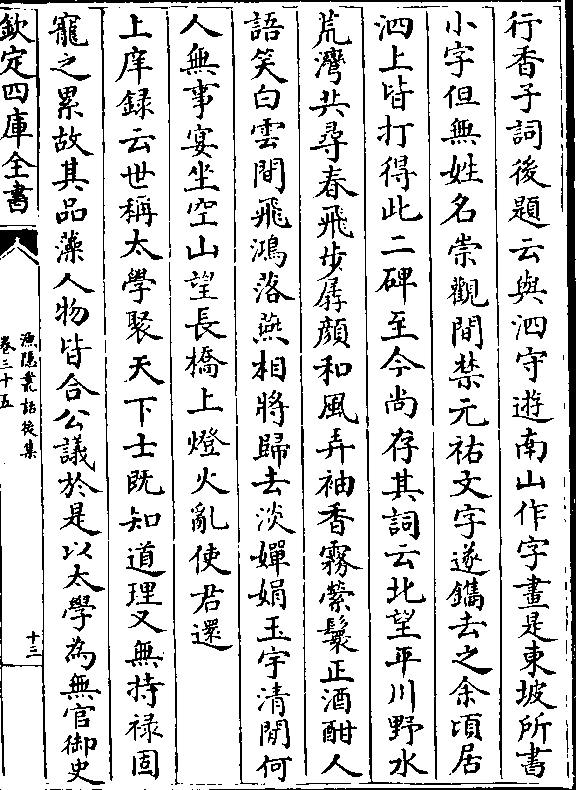 行香子詞後題云與泗守遊南山作字畫是東坡所書
小字但無姓名崇觀間禁元祐文字遂鐫去之余頃居
泗上皆打得此二碑至今尚存其詞云北望平川野水
荒灣共尋春飛步孱顔和風弄袖香霧縈鬟正酒酣人
語笑白雲間飛鴻落照相將歸去淡嬋娟玉宇清閒何
人無事宴坐空山望長橋上燈火亂使君還
上庠録云世稱太學聚天下士既知道理又無持禄固
寵之累故其品藻人物皆合公議於是以太學為無官御史
欽定四庫全書
漁隱叢話後集
卷三十五
十三